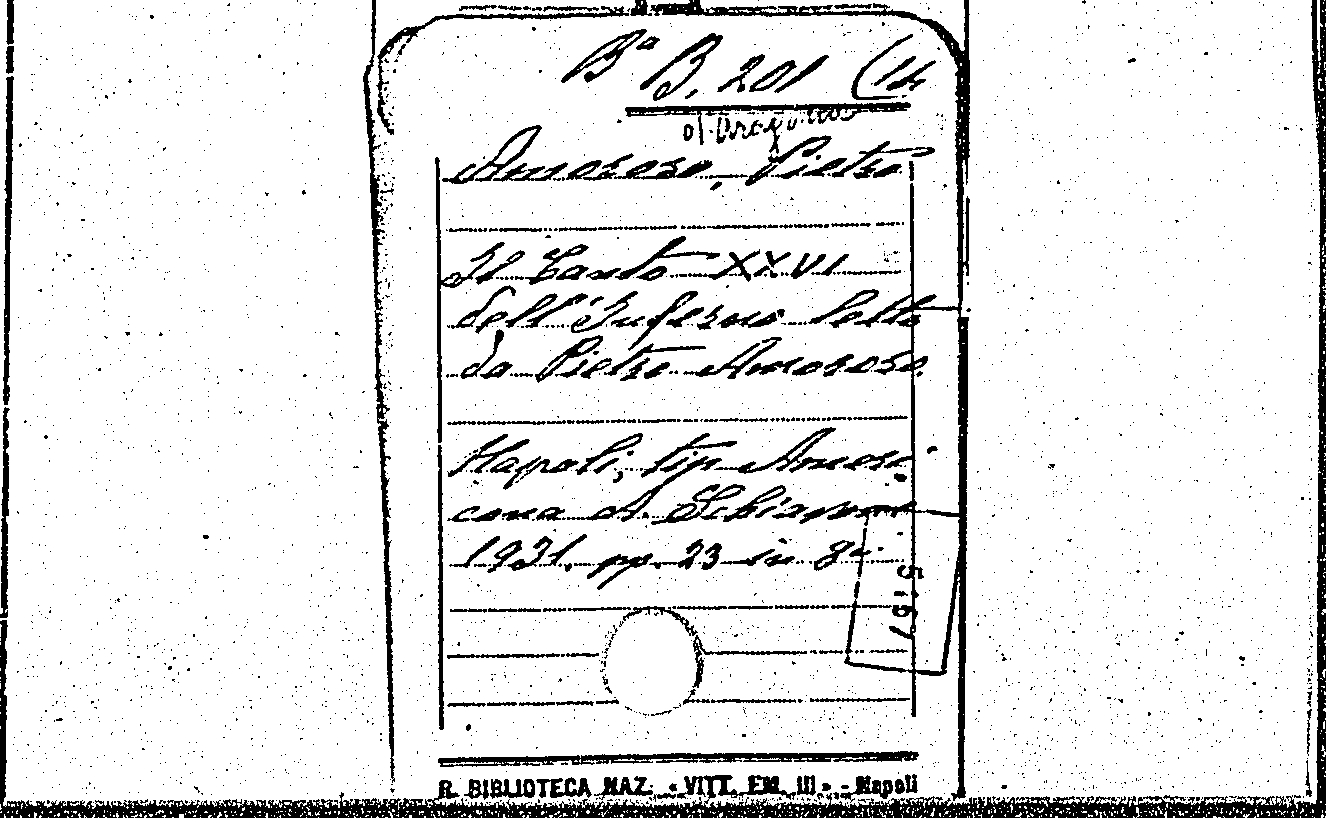 Bª B. 201 (14
Amoroso, Pietro
Il Canto XXVI
dell'Inferno letto
da Pietro Amoroso.
Napoli, tip. Ameri-
cana A. Schiavo
1931. pp. 23 in 8º.
5167
R. BIBLIOTECA NAZ. « VITT. EM. III » - Napoli